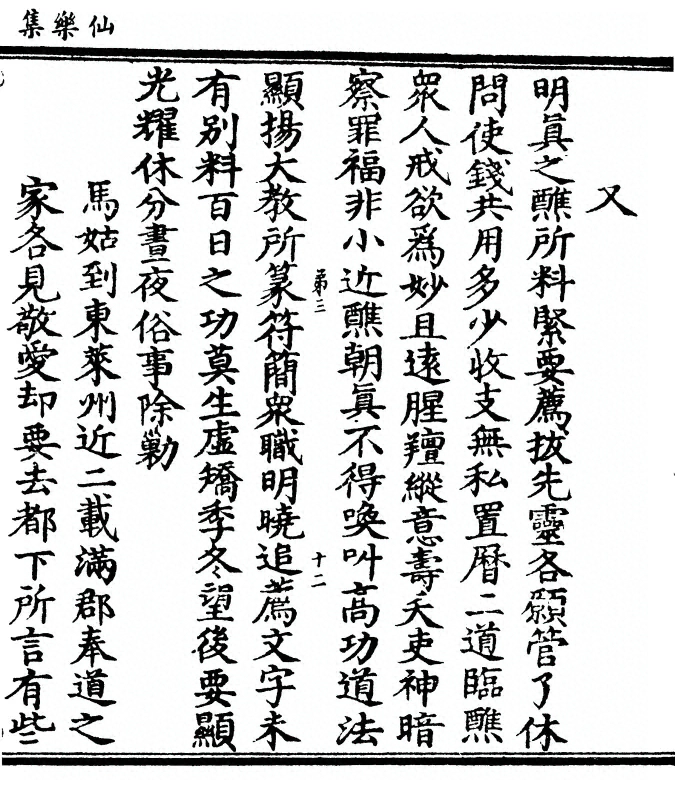 仙樂集
又
明眞之醮所料緊要薦拔先靈各願管了休
問使錢共用多少收支無私置曆二道臨醮
衆人戒欲爲妙且遠腥羶縱意壽夭吏神暗
察罪福非小近醮朝眞不得喚叫高功道法
第三 十二
顯揚大教所篆符簡衆職明曉追薦文字未
有别料百日之功莫生虛矯季冬望後要顯
光耀休分晝夜俗事除勦
馬姑到東萊州近二載滿郡奉道之
家各見敬愛却要去都下所言有些